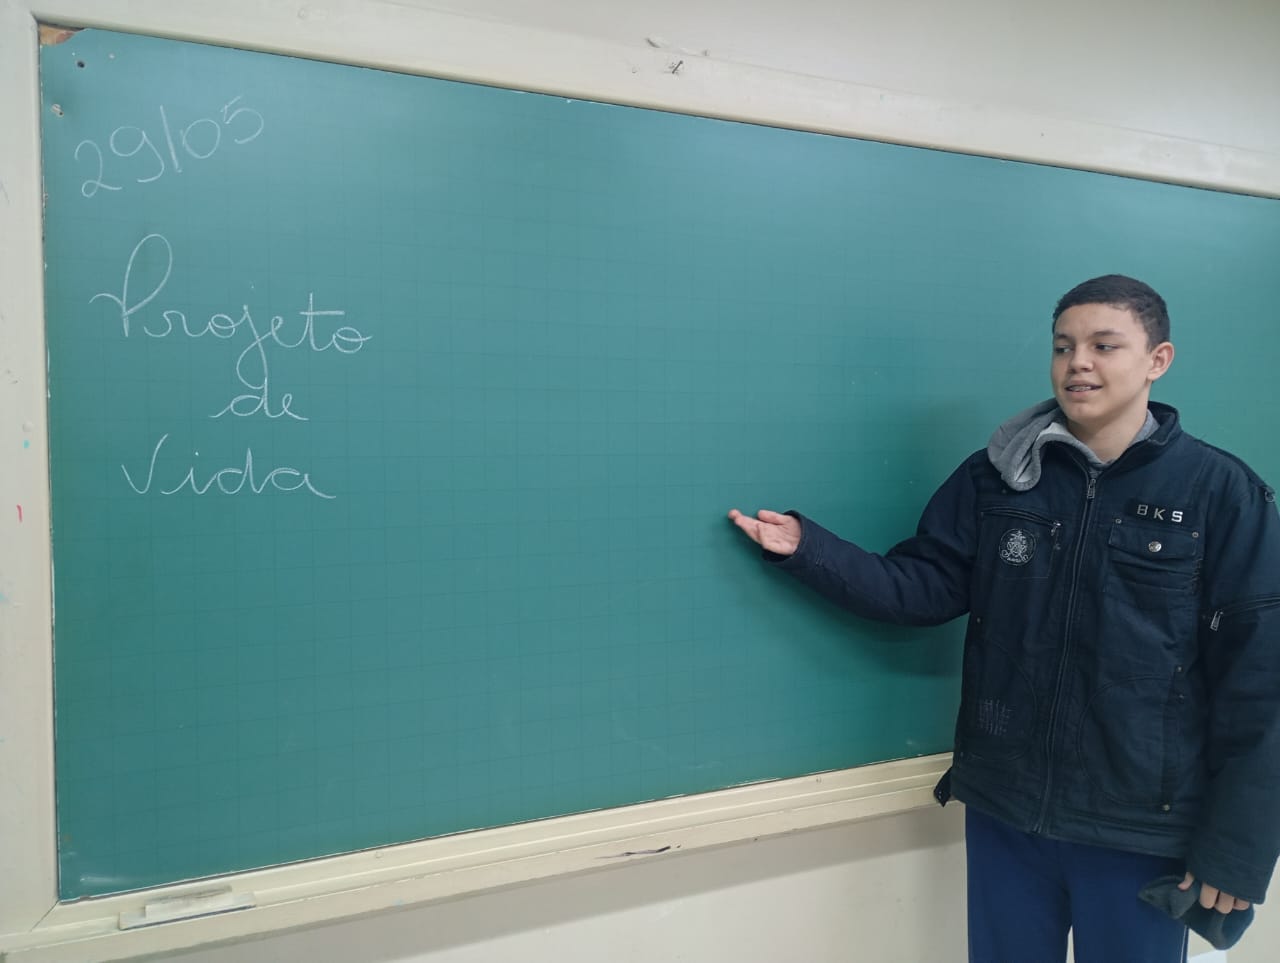 29/05
Projeto
de
Vida
BKS